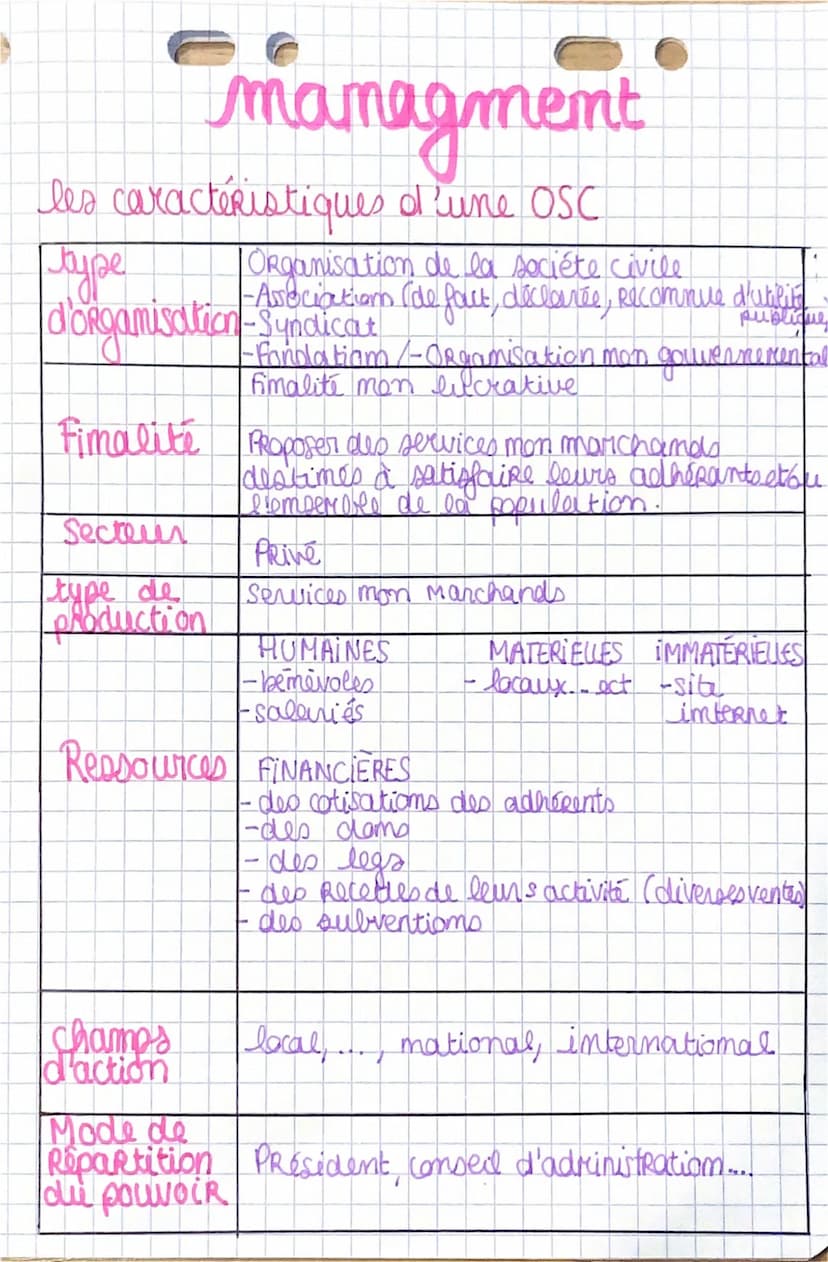 managment
les caractéristiques d'une OSC
type
d'organisation
Organisation de la sociéte civile
-Association (de fact, déclarée, reconnue d'utilité
publique,
-Syndicat
-Fondation /-Organisation non gouvernemental
Finalité
Finalité non lucrative
Proposer des services non marchands
destinés à satisfaire leurs adhérants et/ou
l'ensemble de la population.
Secteur
Privé
type de
production
services non Marchands
Ressources
HUMAINES
-bénévoles
-salariés
MATERIELLES
- locaux... ect
IMMATÉRIELLES
-site
internet
FINANCIÈRES
- des cotisations des adhérents
-des dons
- des legs
- des recettes de leurs activité (diverses ventes)
- des subventions
champs
d'action
local, ..., national, international
Mode de
Répartition
du pouvoir
Président, conseil d'administration...